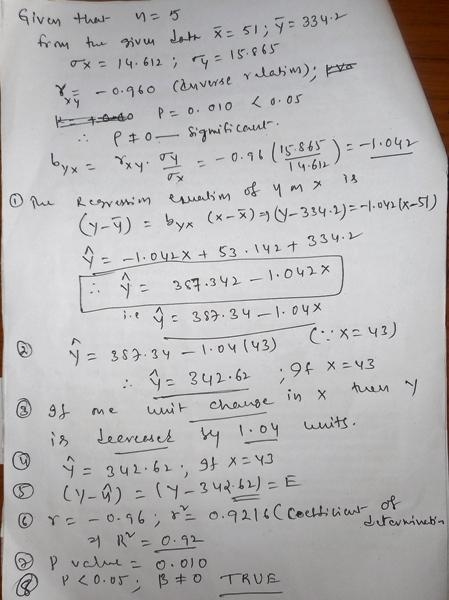 Given that n = 5
from the given data x̄ = 51; ȳ = 334.2
σx = 14.612; σy = 15.865
rxy = -0.960 (Inverse relation);
P = 0.010 < 0.05
∴ ρ ≠ 0 — Significant.
byx = rxy · σy/σx = -0.96 (15.865/14.612) = -1.042
① The Regression equation of y on x is
(y-ȳ) = byx (x-x̄) ⇒ (y-334.2) = -1.042(x-51)
ŷ = -1.042x + 53.142 + 334.2
∴ ŷ = 387.342 - 1.042x
i.e ŷ = 387.34 - 1.04x
② ŷ = 387.34 - 1.04(43) (∵ x = 43)
∴ ŷ = 342.62; If x = 43
③ If one unit change in x then y
is decreased by 1.04 units.
④ ŷ = 342.62; If x = 43
⑤ (y-ŷ) = (y-342.62) = E
⑥ r = -0.96; r² = 0.9216 (Coefficient of determination
⇒ R² = 0.92
⑦ P value = 0.010
⑧ P < 0.05; β ≠ 0 TRUE